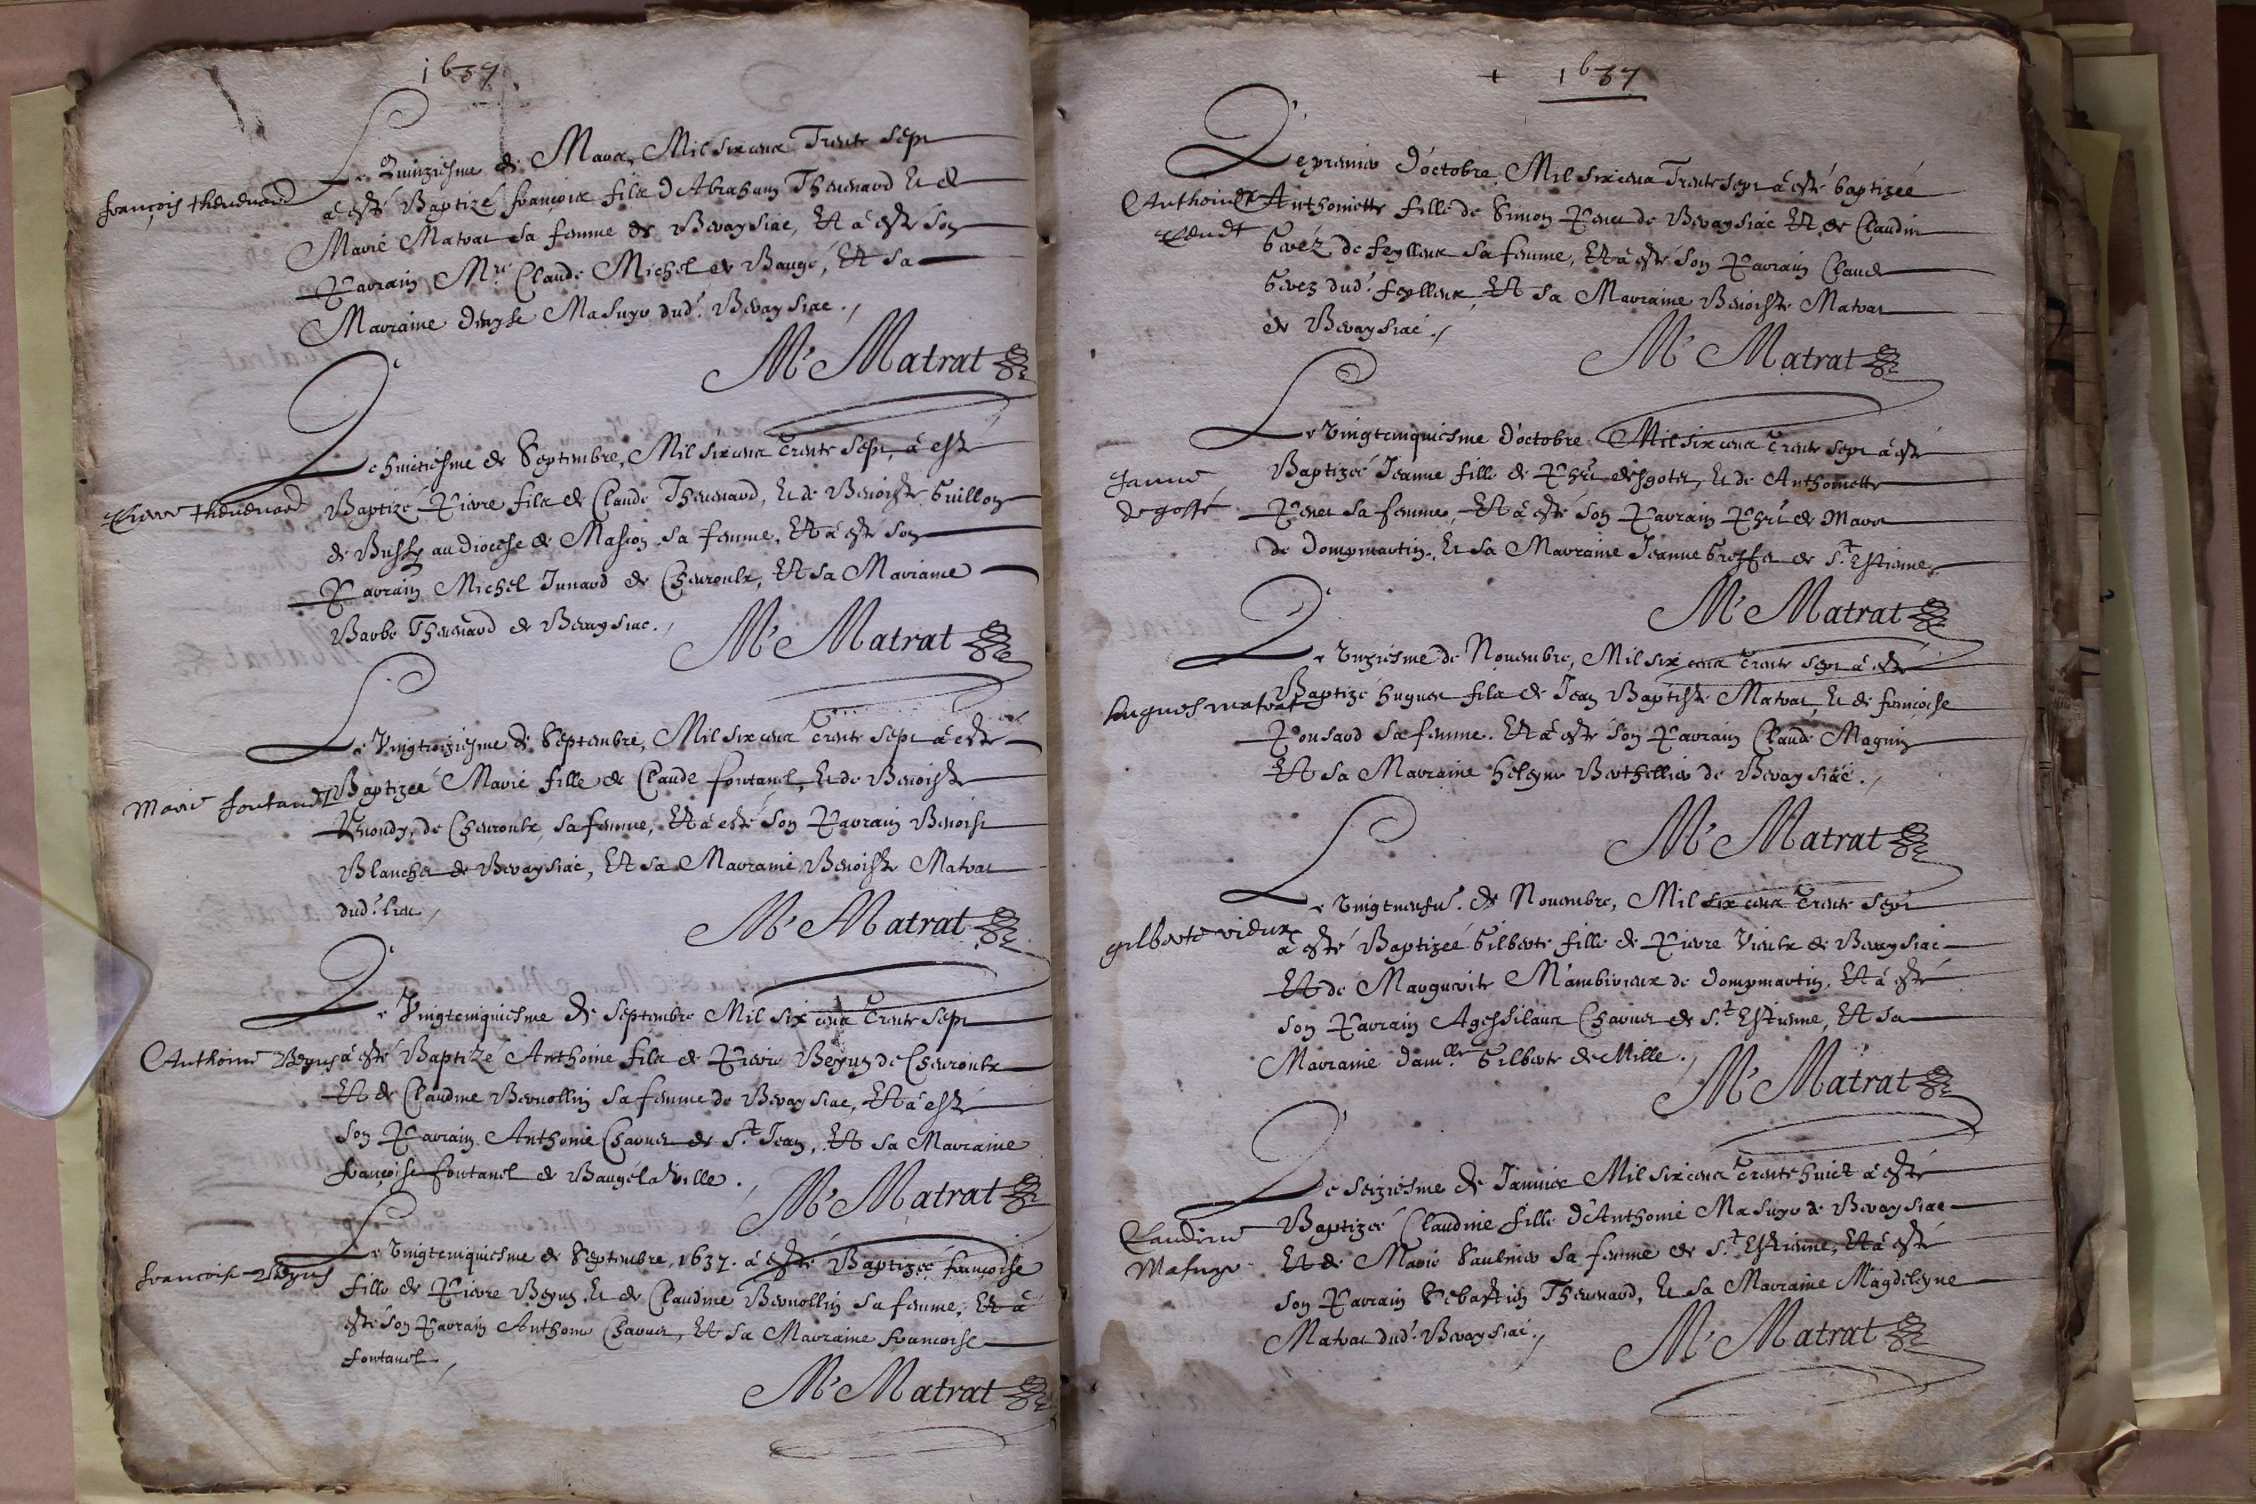 1637
Le Quinziesme de Mars, Mil six cens Trente sept
françois thevenard
a esté Baptizé françois filz d'Abraham Thevenard et de
Marie Matrat sa femme de Bevaysiac, Et a esté son
Parrain Mre Claude Michel de Baugé, Et sa
Marraine denyse Masuyr dud. Bevaysiac.
M. Matrat
Le huictiesme de Septembre, Mil six cens Trente sept, a esté
pierre thevenard
Baptizé Pierre filz de Claude Thevenard, et de Benoiste Guillon
de Bussy au diocese de Mascon sa femme, Et a esté son
Parrain Michel Junard de Chevroulx, Et sa Marraine
Barbe Thevenard de Bevaysiac.
M. Matrat
Le Vingtroiziesme de Septembre, Mil six cens Trente sept a esté
marie fontanel
Baptizée Marie fille de Claude fontanel, et de Benoiste
de Chevroulx, sa femme, Et a esté son Parrain Benoist
Blanchet de Bevaysiac, Et sa Marraine Benoiste Matrat
dud. lieu
M. Matrat
Le Vingtcinquiesme de Septembre Mil six cens Trente sept
Anthoine Beguz
a esté Baptizé Anthoine filz de Pierre Beguz de Chevroulx
Et de Claudine Bernollin sa femme de Bevaysiac, Et a esté
son Parrain Anthoine Charvet de St Jean, Et sa Marraine
françoise fontanel de Baugé la Ville.
M. Matrat
Le Vingtcinquiesme de Septembre 1637. a esté Baptizée françoise
francoise Beguz
fille de Pierre Beguz et de Claudine Bernollin sa femme, Et a
esté son Parrain Anthoine Charvet, Et sa Marraine francoise
fontanel
M. Matrat
+ 1637
Le premier d'octobre Mil six cens Trente sept a esté baptizée
Anthoinette
Anthoinette fille de Simon Penet de Bevaysiac Et de Claudine
Penet
Gevez de feyllens sa femme, Et a esté son Parrain Claude
Gevez dud. feyllens, Et sa Marraine Benoiste Matrat
de Bevaysiac.
M. Matrat
Le Vingtcinquiesme d'octobre Mil six cens Trente sept a esté
Janne
Baptizée Jeanne fille de Phe desgotes, et de Anthoinette
degotté
Penet sa femme, Et a esté son Parrain Phe de Mars
de dompmartin, et sa Marraine Jeanne de St Estienne
M. Matrat
Le Unziesme de Novembre, Mil six cens Trente sept a esté
hugues matrat
Baptizé hugues filz de Jean Baptiste Matrat, et de françoise
Ponsard sa femme. Et a esté son Parrain Claude Magnin
Et sa Marraine heleyne Berthellier de Bevaysiac.
M. Matrat
Le Vingtneufu. de Novembre, Mil six cens Trente sept
gilberte vieux
a esté Baptizée Gilberte fille de Pierre Vieulx de Bevaysiac
Et de Marguerite Mambivieux de dompmartin, Et a esté
son Parrain Agessilaus Charvet de St Estienne, Et sa
Marraine damlle Gilberte de Mille.
M. Matrat
Le seiziesme de Janvier Mil six cens Trente huict a esté
Claudine
Baptizée Claudine fille d'Anthoine Masuyr de Bevaysiac
Masuyr
Et de Marie Saulnier sa femme de St Estienne, Et a esté
son Parrain Sebastien Thevenard, et sa Marraine Magdeleyne
Matrat dud. Bevaysiac.
M. Matrat